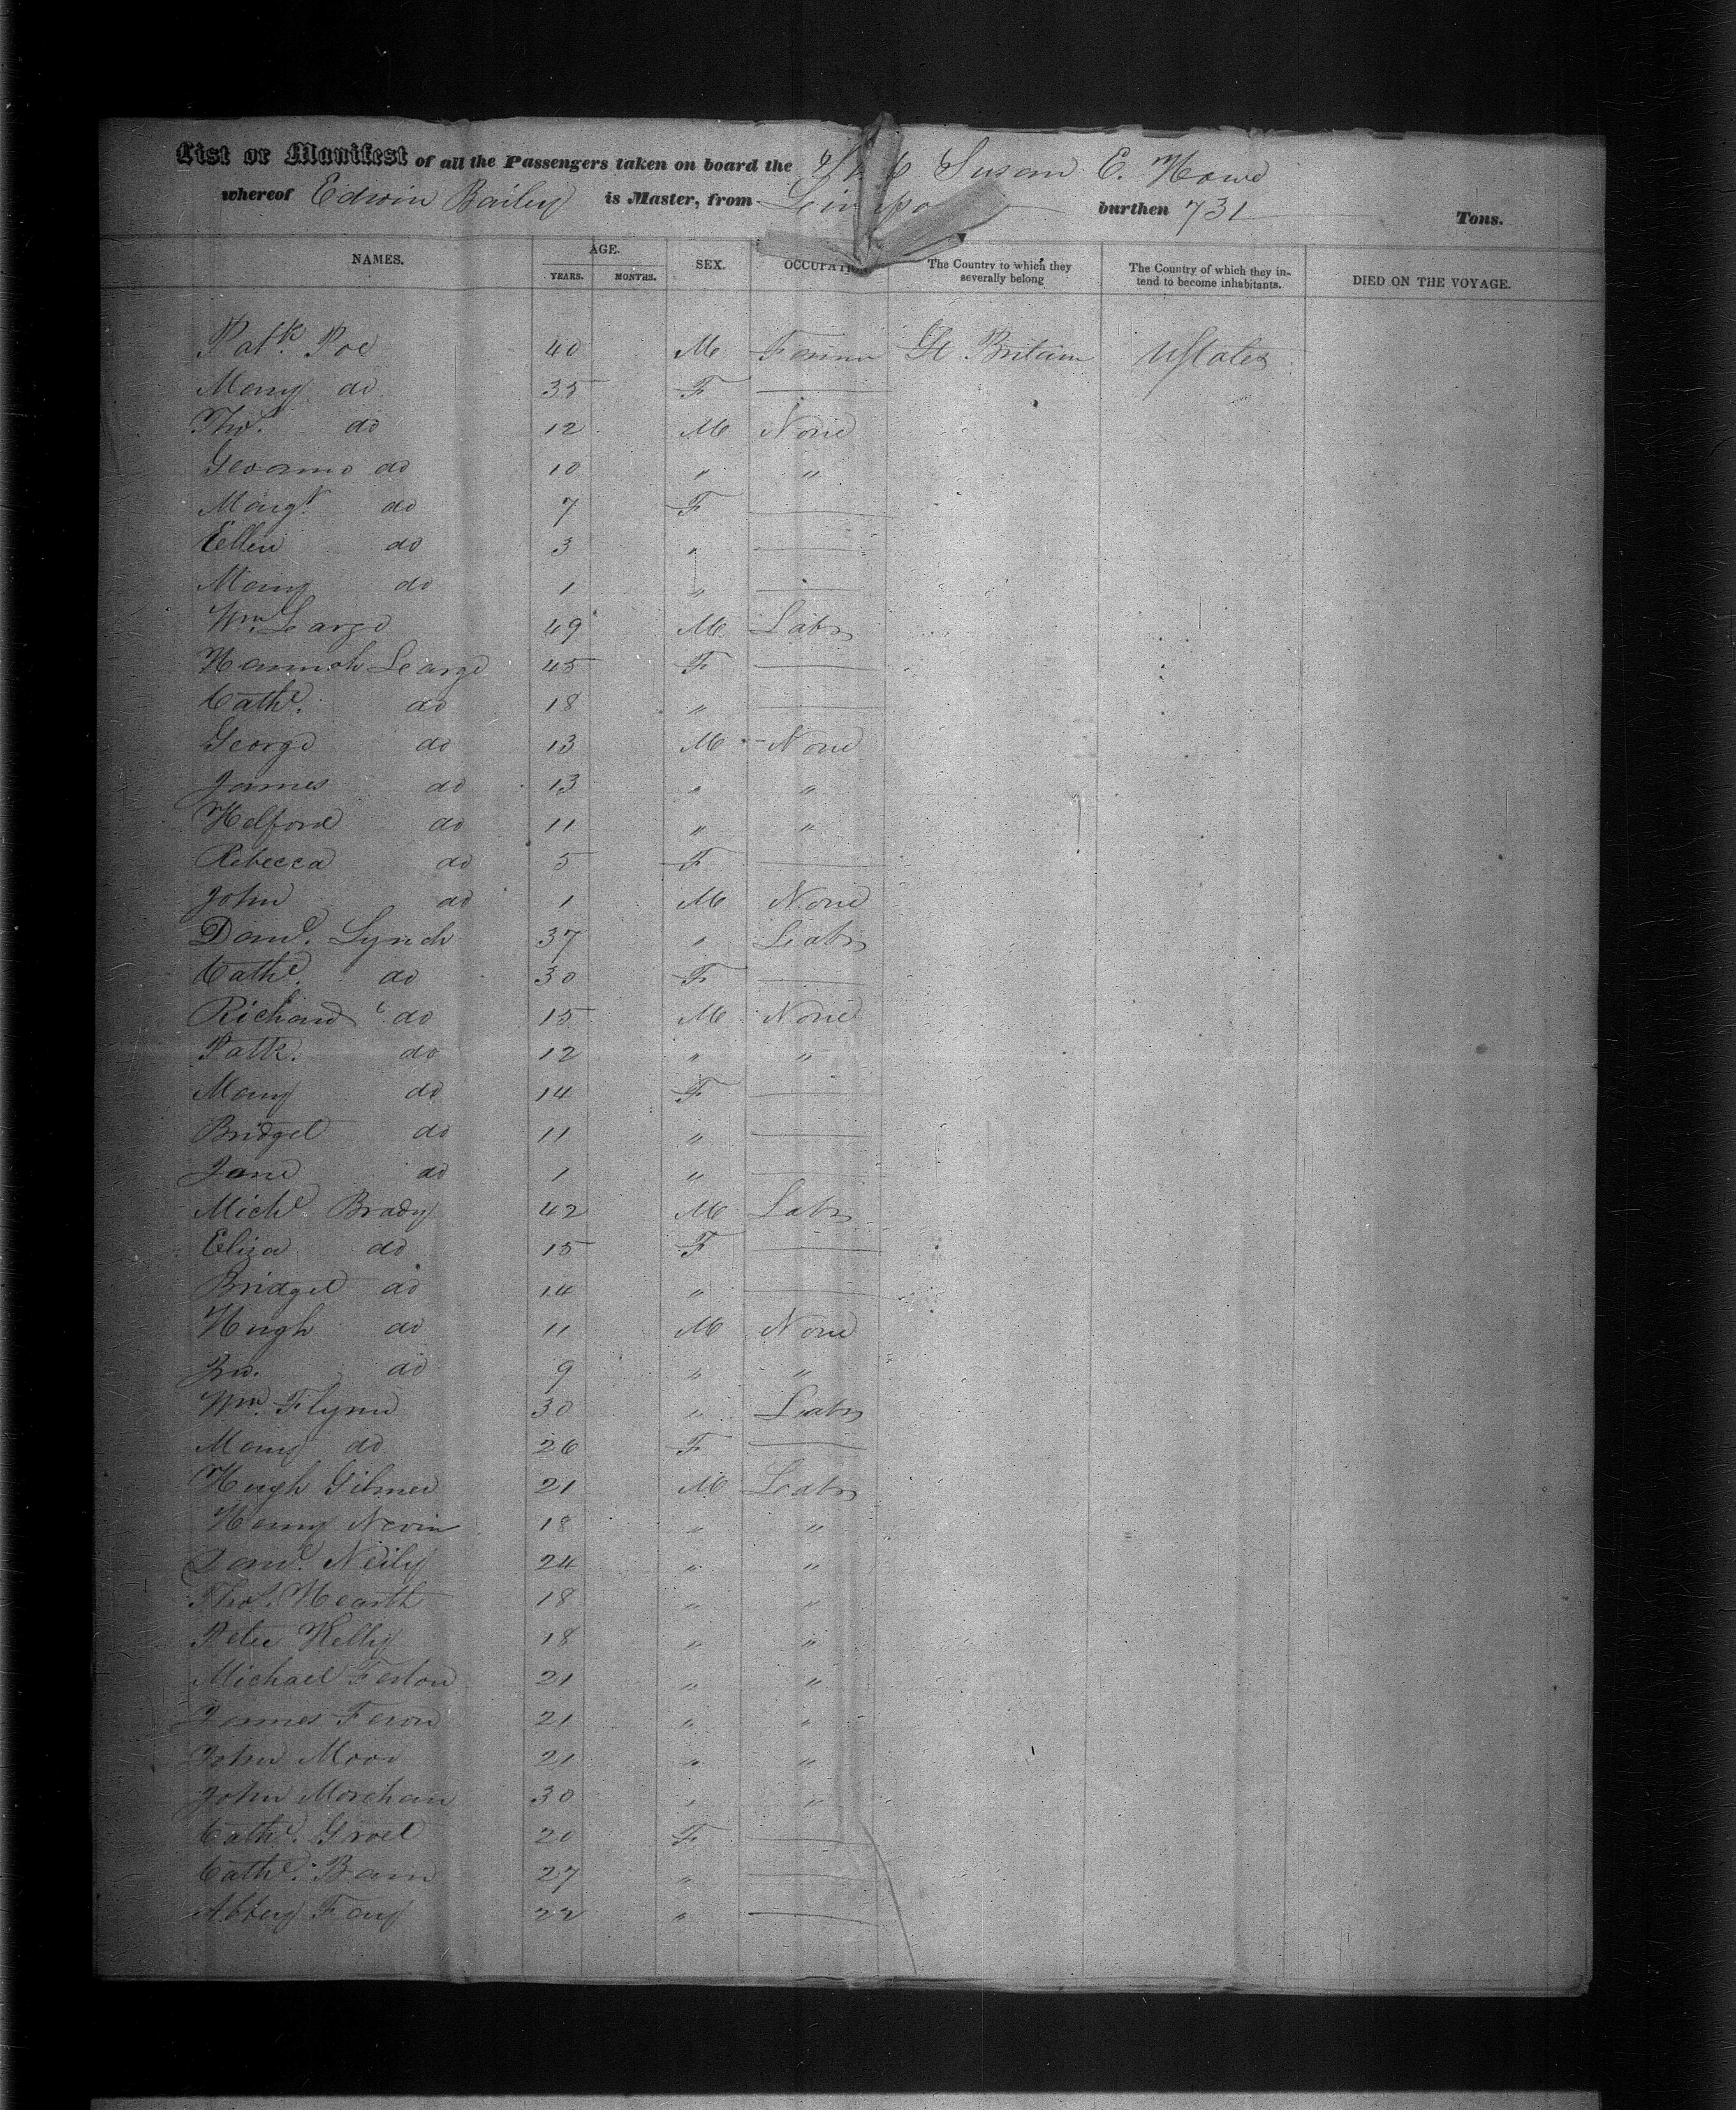 List or Manifest of all the Passengers taken on board the Ship Susan E. Howe
whereof Edwin Bailey is Master, from Liverpo burthen 731 Tons.
NAMES. AGE. YEARS. MONTHS. SEX. OCCUPATION The Country to which they severally belong The Country of which they intend to become inhabitants. DIED ON THE VOYAGE.
Patk. Poe 40 M Farmer Gt Britain UStates
Mary do 35 F
Thos. do 12 M None
do 10 " "
Margt. do 7 F
Ellen do 3 "
Mary do 1 "
Wm. Large 49 M Labr
Hannah Large 45 F
Cathe. do 18 "
George do 13 M None
James do 13 " "
Helford do 11 " "
Rebecca do 5 F
John do 1 M None
Danl. Lynch 37 " Labr
Cathe. do 30 F
Richard do 15 M None
Patk. do 12 " "
Mary do 14 F
Bridget do 11 "
Jane do 1 "
Michl. Brady 42 M Labr
Eliza do 15 F
Bridget do 14 "
Hugh do 11 M None
Jno. do 9 " "
Wm. Flynn 30 " Labr
Mary do 26 F
Hugh Gilmer 21 M Labr
Henry Nevin 18 " "
Danl. Neily 24 " "
Thos. Hearth 18 " "
Peter Kelly 18 " "
Michael 21 " "
James Feron 21 " "
John Moor 21 " "
John 30 " "
Cathe. 20 F
Cathe. 27 "
Abbey Fay 22 "